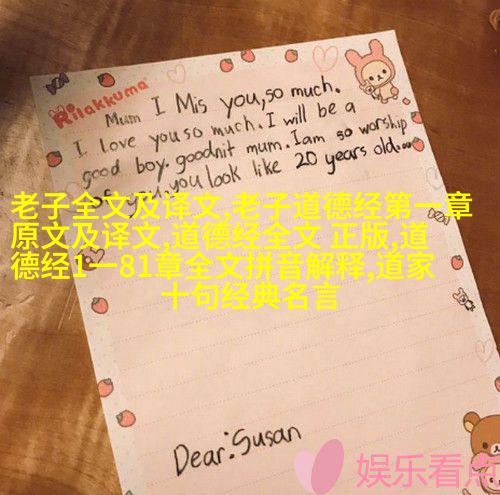 Rilakkuma
Mum I Mis you,so much.
I love you so much. I will be a
good boy. goodnit mum. I am so worship
you. you look like 20 years old.
老子全文及译文,老子道德经第一章
原文及译文,道德经全文 正版,道
德经1一81章全文拼音解释,道家
十句经典名言
Dear:Susan
娱乐看点